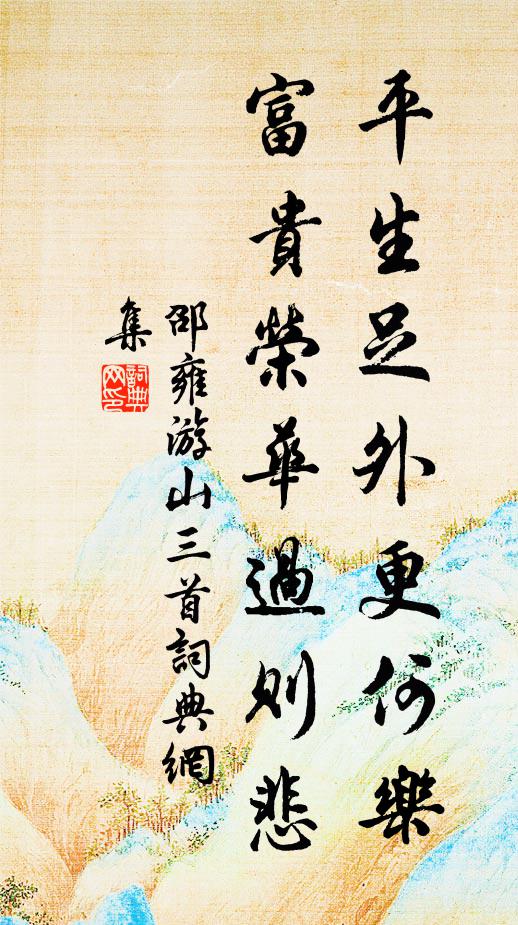 平生足外更何樂
富貴榮華過則悲
邵雍游山三首詞典網
集
詞典網印